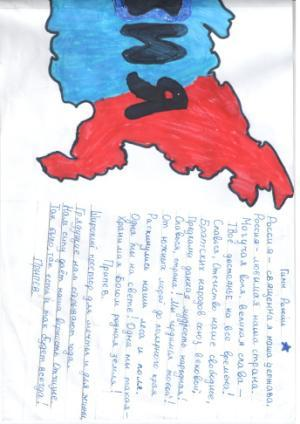 ИЯ
Гимн России
Россия - священная наша держава,
Россия - любимая наша страна.
Могучая воля, великая слава -
Твоё достоянье на все времена!
Славься, Отечество наше свободное,
Братских народов союз вековой,
Предками данная мудрость народная!
Славься, страна! Мы гордимся тобой!
От южных морей до полярного края
Раскинулись наши леса и поля.
Одна ты на свете! Одна ты такая -
Хранимая Богом родная земля!
Припев
Широкий простор для мечты и для жизни
Грядущие нам открывают года.
Нам силу даёт наша верность Отчизне.
Так было, так есть и так будет всегда!
Припев